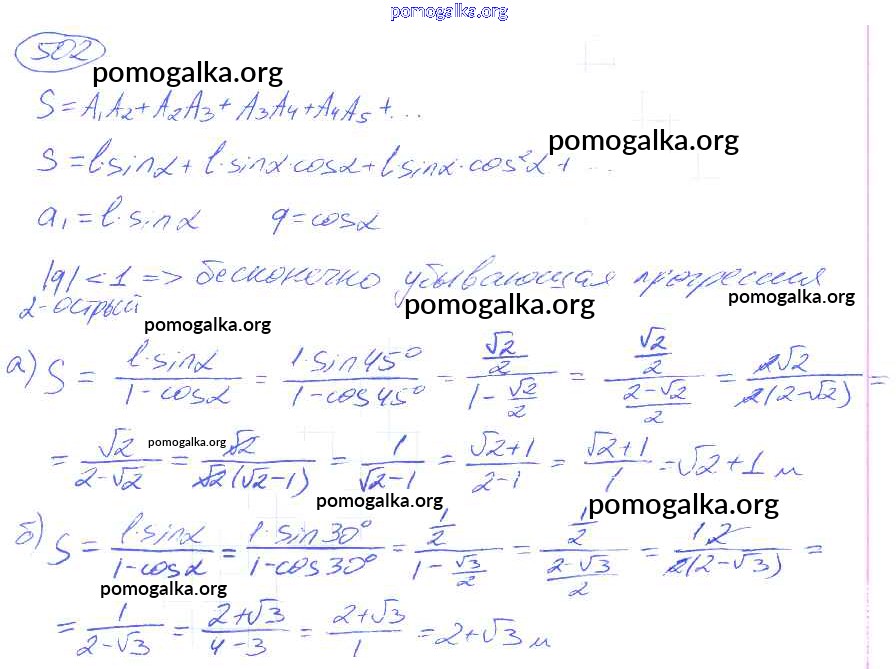 pomogalka.org
502
pomogalka.org
S = A₁A₂ + A₂A₃ + A₃A₄ + A₄A₅ + ...
pomogalka.org
S = l·sinα + l·sinα·cosα + l sinα·cos²α + ...
a₁ = l·sinα q = cosα
|q| < 1 => бесконечно убывающая прогрессия
α-острый
pomogalka.org
pomogalka.org
pomogalka.org
а) S = (l·sinα)/(1-cosα) = (1·sin45°)/(1-cos45°) = (√2/2)/(1-√2/2) = (√2/2)/((2-√2)/2) = (2√2)/(2(2-√2)) =
= √2/(2-√2) = √2/(√2(√2-1)) = 1/(√2-1) = (√2+1)/(2-1) = (√2+1)/1 = √2+1 м
pomogalka.org
pomogalka.org
pomogalka.org
б) S = (l·sinα)/(1-cosα) = (1·sin30°)/(1-cos30°) = (1/2)/(1-√3/2) = (1/2)/((2-√3)/2) = (1·2)/(2(2-√3)) =
pomogalka.org
= 1/(2-√3) = (2+√3)/(4-3) = (2+√3)/1 = 2+√3 м